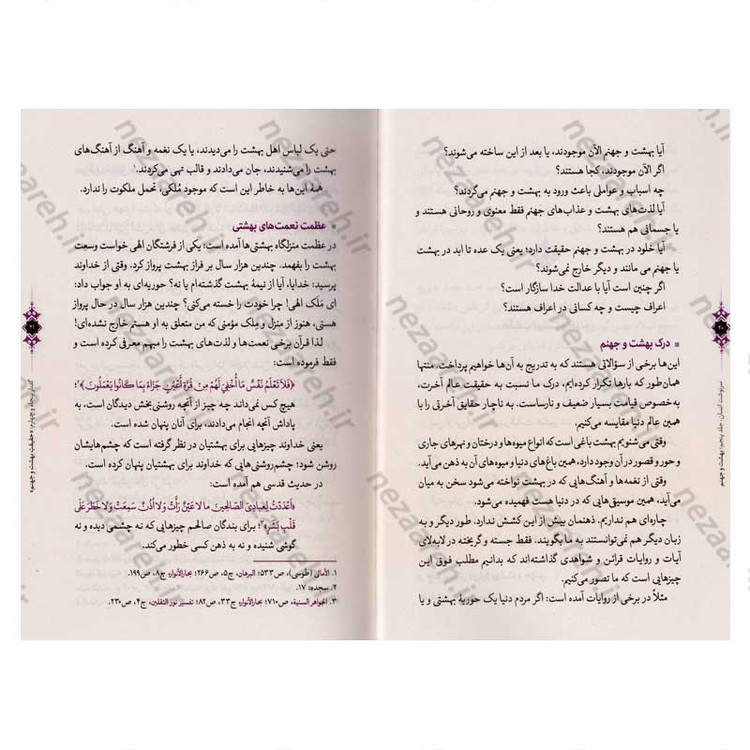 آیا بهشت و جهنم الآن موجودند، یا بعد از این ساخته می‌شوند؟
اگر الآن موجودند، کجا هستند؟
چه اسباب و عواملی باعث ورود به بهشت و جهنم می‌گردند؟
آیا لذت‌های بهشت و عذاب‌های جهنم فقط معنوی و روحانی هستند و
یا جسمانی هم هستند؟
آیا خلود در بهشت و جهنم حقیقت دارد؛ یعنی یک عده تا ابد در بهشت
یا جهنم می مانند و دیگر خارج نمی‌شوند؟
اگر چنین است آیا با عدالت خدا سازگار است؟
اعراف چیست و چه کسانی در اعراف هستند؟
درک بهشت و جهنم
این‌ها برخی از سؤالاتی هستند که به تدریج به آن‌ها خواهیم پرداخت. منتها
همان‌طور که بارها تکرار کرده‌ایم، درک ما نسبت به حقیقت عالم آخرت،
به‌خصوص قیامت بسیار ضعیف و نارساست. به ناچار حقایق آخرتی را با
همین عالم دنیا مقایسه می‌کنیم.
وقتی می‌شنویم بهشت باغی است که انواع میوه‌ها و درختان و نهرهای جاری
و حور و قصور در آن وجود دارد، همین باغ‌های دنیا و میوه‌های آن به ذهن می‌آید.
وقتی از نغمه‌ها و آهنگ‌هایی که در بهشت نواخته می‌شود سخن به میان
می‌آید، همین موسیقی‌هایی که در دنیا هست فهمیده می‌شود.
چاره‌ای هم نداریم. ذهنمان بیش از این کشش ندارد. طور دیگر و به
زبان دیگر هم نمی‌توانستند به ما بگویند. فقط جسته و گریخته در لابه‌لای
آیات و روایات قرائن و شواهدی گذاشته‌اند که بدانیم مطلب فوق این
چیزهایی است که ما تصور می‌کنیم.
مثلاً در برخی از روایات آمده است: اگر مردم دنیا یک حوریهٔ بهشتی و یا
سرنوشت انسان، جلد پنجم: بهشت و جهنم
حتی یک لباس اهل بهشت را می‌دیدند، یا یک نغمه و آهنگ از آهنگ‌های
بهشت را می‌شنیدند، جان می‌دادند و قالب تهی می‌کردند.۱
همهٔ این‌ها به خاطر این است که موجود مُلکی، تحمل ملکوت را ندارد.
عظمت نعمت‌های بهشتی
در عظمت منزلگاه بهشتی‌ها آمده است: یکی از فرشتگان الهی خواست وسعت
بهشت را بفهمد. چندین هزار سال بر فراز بهشت پرواز کرد. وقتی از خداوند
پرسید: خدایا، آیا از نیمهٔ بهشت گذشته‌ام یا نه؟ حوریه‌ای به او جواب داد:
ای مَلَک الهی! چرا خودت را خسته می‌کنی؟ چندین هزار سال در حال پرواز
هستی، هنوز از منزل و مِلک مؤمنی که من متعلق به او هستم خارج نشده‌ای!
لذا قرآن برخی نعمت‌ها و لذت‌های بهشت را مبهم معرفی کرده است و
فقط فرموده است:
﴿فَلَا تَعْلَمُ نَفْسٌ مَا أُخْفِيَ لَهُمْ مِنْ قُرَّةِ أَعْيُنٍ جَزَاءً بِمَا كَانُوا يَعْمَلُونَ﴾۲؛
هیچ کس نمی‌داند چه چیز از آنچه روشنی‌بخش دیدگان است، به
پاداش آنچه انجام می‌دادند، برای آنان پنهان شده است.
یعنی خداوند چیزهایی برای بهشتیان در نظر گرفته است که چشم‌هایشان
روشن شود؛ چشم‌روشنی‌هایی که خداوند برای بهشتیان پنهان کرده است.
در حدیث قدسی هم آمده است:
«أَعْدَدْتُ لِعِبَادِيَ الصَّالِحِينَ مَا لَا عَيْنٌ رَأَتْ وَلَا أُذُنٌ سَمِعَتْ وَلَا خَطَرَ عَلَى
قَلْبِ بَشَرٍ»۳؛ برای بندگان صالحم چیزهایی که نه چشمی دیده و نه
گوشی شنیده و نه به ذهن کسی خطور می‌کند.
۱. الأمالی (طوسی)، ص۵۳۳؛ البرهان، ج۵، ص۲۶۶؛ بحارالأنوار، ج۸، ص۱۹۹.
۲. سجده: ۱۷.
۳. الجواهر السنیة، ص۷۱۰؛ بحارالأنوار، ج۳۳، ص۸۲؛ تفسیر نور الثقلین، ج۴، ص۲۳۰.
گفتار پنجاه و چهارم: «حقیقت بهشت و جهنم»
nezaareh.ir